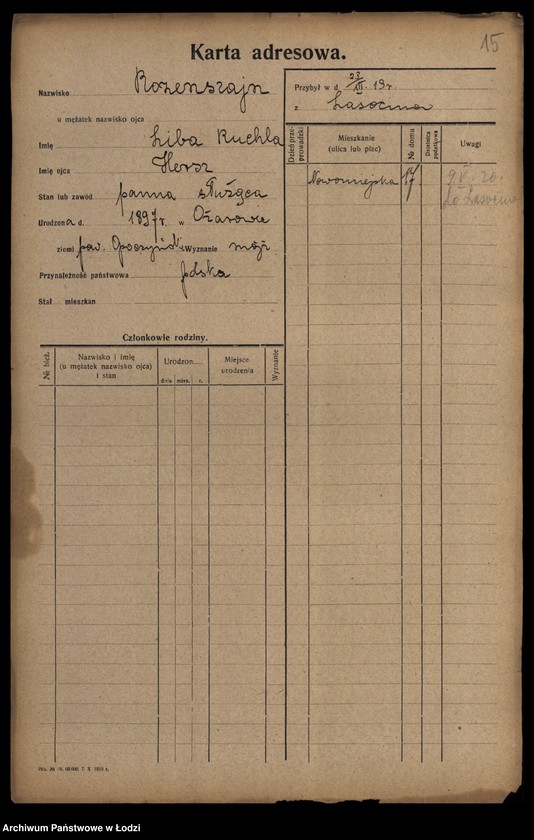 15
Karta adresowa.
Nazwisko Rozenszajn
u mężatek nazwisko ojca
Imię Liba Ruchla
Imię ojca Hersz
Stan lub zawód panna służąca
Urodzona d. 1897 r. w Ożarowie
ziemi pow. Opoczyński Wyznanie mojż
Przynależność państwowa polska
Stał mieszkan
Członkowie rodziny.
№ bież.
Nazwisko i imię
(u mężatek nazwisko ojca)
i stan
Urodzon
dnia mies. r.
Miejsce
urodzenia
Wyznanie
Przybył w d. 23/XII 19 r.
z Lasocina
Dzień prze-
prowadzki
Mieszkanie
(ulica lub plac)
№ domu
Dzielnica
podatkowa
Uwagi
Nowomiejska 17
9 V. 20.
do Lasocina
7. X. 1919 r.
Archiwum Państwowe w Łodzi